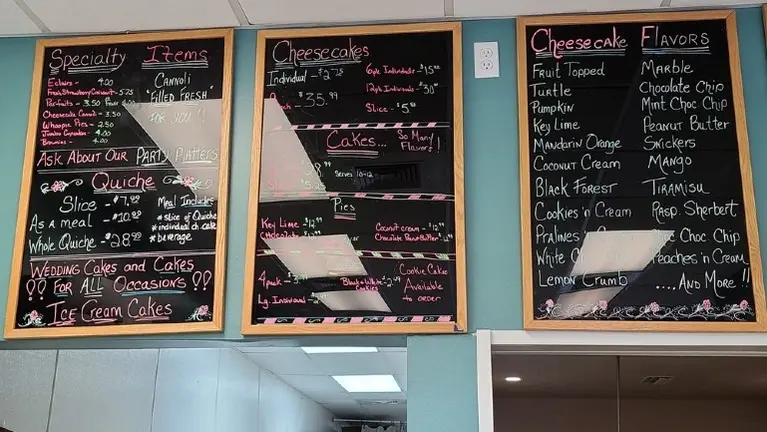 Specialty Items
Eclairs - 4.00
Fresh Strawberry Croissant - 5.75
Parfaits - 3.50
Cheesecake Cannoli - 3.50
Whoopie Pies - 2.50
Jumbo Cupcakes - 4.00
Brownies - 4.00
Cannoli
"Filled Fresh"
For You !!
Ask About Our Party Platters
Quiche
Slice - $7.
As a meal - $10.
Whole Quiche - $28.
Meal Includes
* slice of Quiche
* individual cake
* beverage
Wedding Cakes and Cakes
?? For All Occasions ??
Ice Cream Cakes
Cheesecakes
Individual - $2.75
- $35.99
6 ple Individuals - $15.
12 ple Individuals - $30.
Slice - $5.
Cakes...
So Many
Flavors!
Serves 10-12
Pies
Key Lime - $12.99
Chocolate
Coconut cream - $12.99
Chocolate Peanut Butter
4 pack -
Black & White
Cookies -
Lg. Individual
Cookie Cakes
Available
to order
Cheesecake Flavors
Fruit Topped
Turtle
Pumpkin
Key Lime
Mandarin Orange
Coconut Cream
Black Forest
Cookies 'n Cream
Pralines
White
Lemon Crumb
Marble
Chocolate Chip
Mint Choc Chip
Peanut Butter
Snickers
Mango
Tiramisu
Rasp. Sherbert
Choc Chip
Peaches 'n Cream
....And More !!